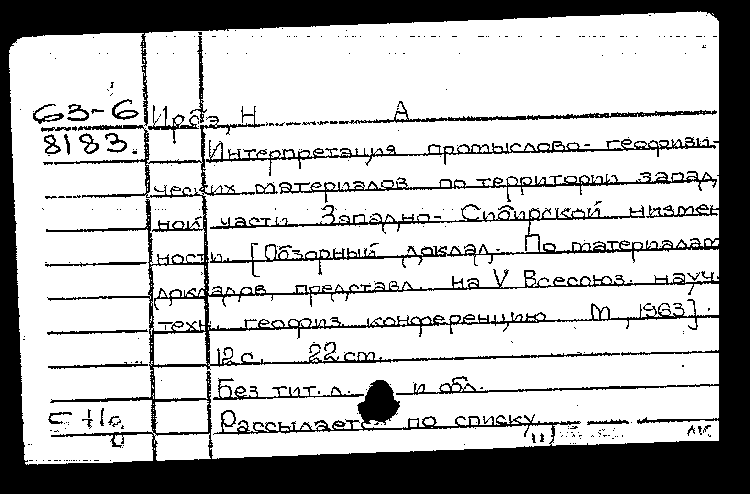 63-6 Ирбэ, Н А
8183. Интерпретация промыслово-геофизи-
ческих материалов по территории запад-
ной части Западно-Сибирской низмен
ности. [Обзорный доклад. По материалам
докладов, представл. на V Всесоюз. науч.
техн. геофиз. конференцию М, 1963].
12 с. 22 cm.
Без тит. л. и обл.
Рассылается по списку